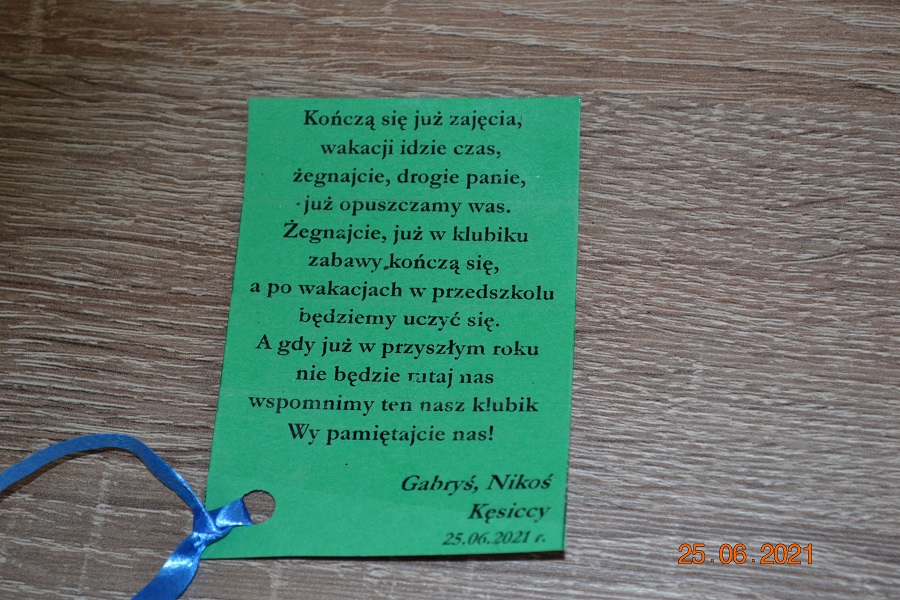 Kończą się już zajęcia,
wakacji idzie czas,
żegnajcie, drogie panie,
już opuszczamy was.
Żegnajcie, już w klubiku
zabawy kończą się,
a po wakacjach w przedszkolu
będziemy uczyć się.
A gdy już w przyszłym roku
nie będzie tutaj nas
wspomnimy ten nasz klubik
Wy pamiętajcie nas!
Gabryś, Nikoś
Kęsiccy
25.06.2021 r.
25.06.2021